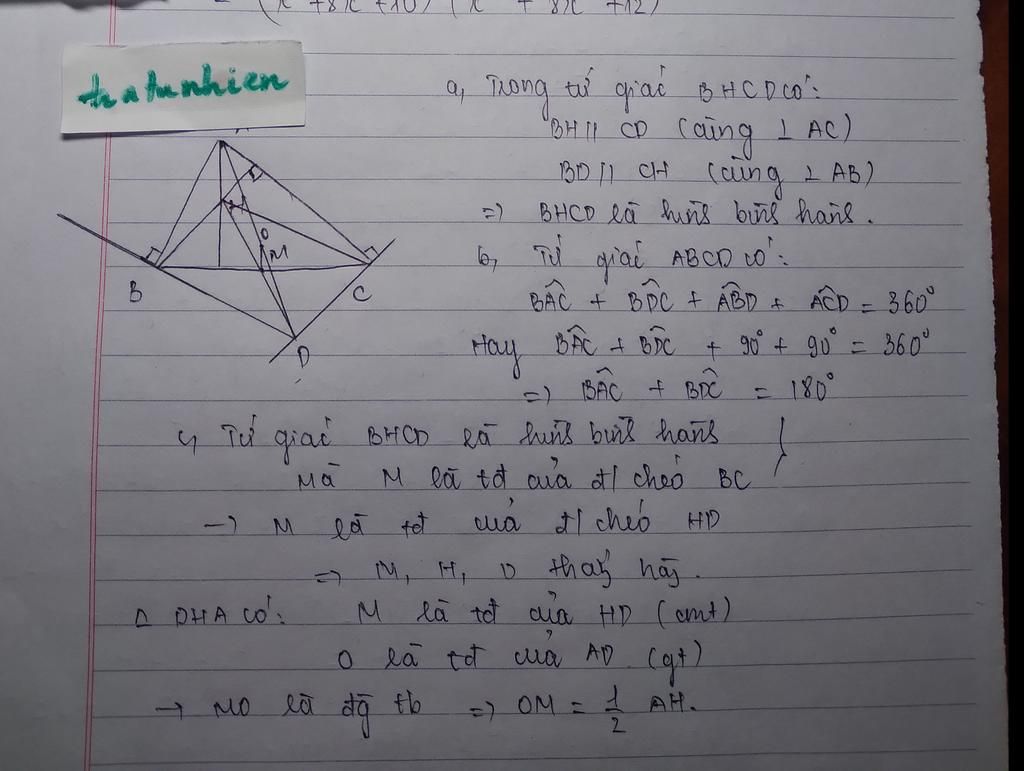 = (x² + 8x + 10) (x² + 8x + 12)
hatunhien
A
O
M
B
C
D
a, Trong tứ giác BHCD có:
BH // CD (cùng ⊥ AC)
BD // CH (cùng ⊥ AB)
=> BHCD là hình bình hành.
b, Tứ giác ABCD có:
BÂC + BD̂C + AB̂D + AĈD = 360°
Hay BÂC + BD̂C + 90° + 90° = 360°
=> BÂC + BD̂C = 180°
c, Tứ giác BHCD là hình bình hành }
Mà M là tđ của đ/ chéo BC
→ M là tđ của đ/ chéo HD
=> M, H, D thẳng hàng.
Δ DHA có: M là tđ của HD (cmt)
O là tđ của AD (gt)
→ MO là đg tb => OM = 1/2 AH.